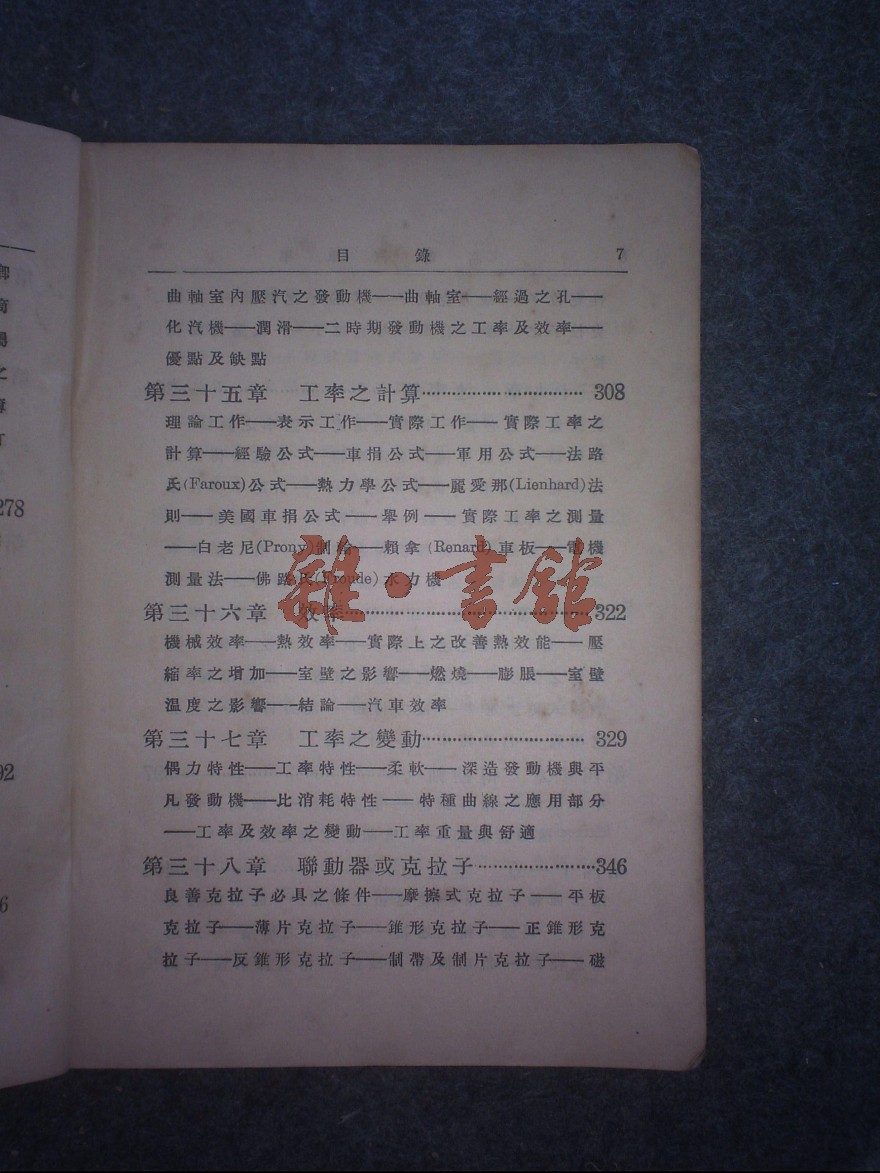 目錄 7
曲軸室內壓汽之發動機——曲軸室——經過之孔——
化汽機——潤滑——二時期發動機之工率及效率——
優點及缺點
第三十五章 工率之計算································ 308
理論工作——表示工作——實際工作——實際工率之
計算——經驗公式——車捐公式——軍用公式——法路
氏(Faroux)公式——熱力學公式——麗愛那(Lienhard)法
則——美國車捐公式——舉例——實際工率之測量
——白老尼(Prony)制輪——賴拿(Renard)車板——電機
測量法——佛路氏(Froude)水力機
第三十六章 效率················································322
機械效率——熱效率——實際上之改善熱效能——壓
縮率之增加——室壁之影響——燃燒——膨脹——室壁
溫度之影響——結論——汽車效率
第三十七章 工率之變動································ 329
偶力特性——工率特性——柔軟——深造發動機與平
凡發動機——比消耗特性——特種曲線之應用部分
——工率及效率之變動——工率重量與舒適
第三十八章 聯動器或克拉子·······················346
良善克拉子必具之條件——摩擦式克拉子——平板
克拉子——薄片克拉子——錐形克拉子——正錐形克
拉子——反錐形克拉子——制帶及制片克拉子——磁
雜·書館
278
92
6